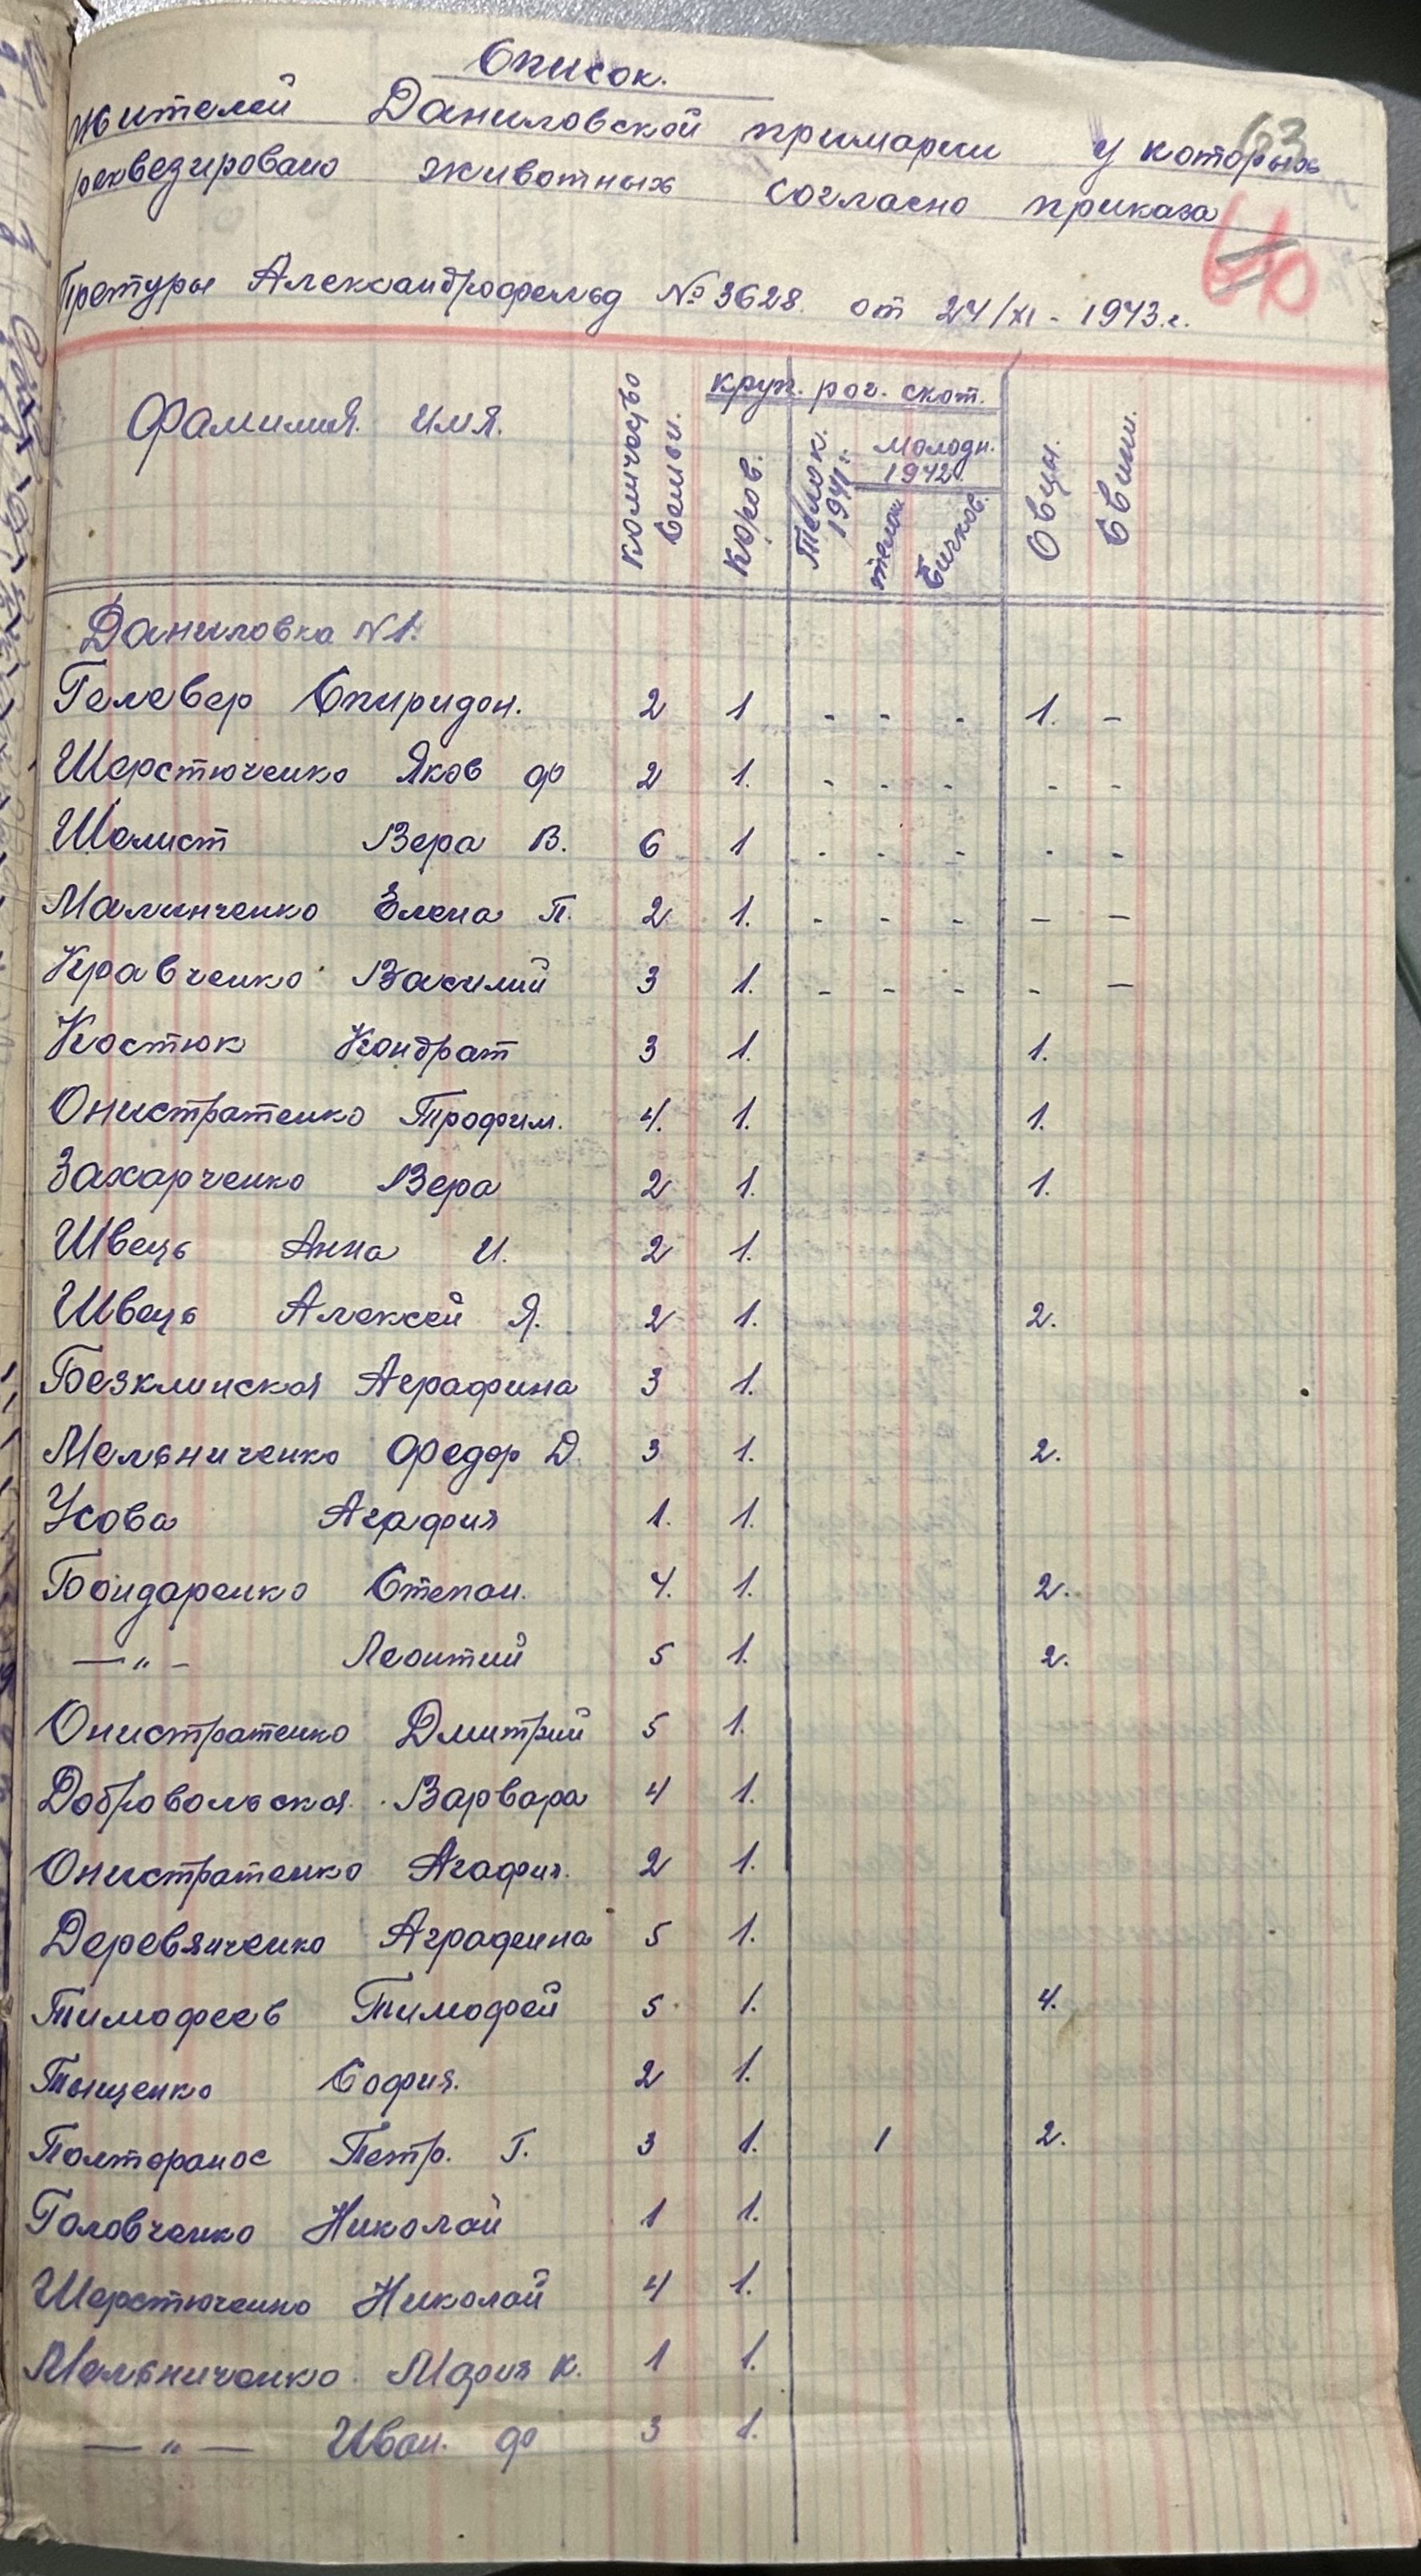 Список.
63
жителей Даниловской примарии у которых
реквезировано животных согласно приказа
Претуры Александрофельд № 3628 от 24/XI - 1943 г.
Фамилия. имя. количество семьи. круп. рог. скот. Овцы. Свини.
коров. телок. 1941 г. молодн. 1942
телок бичков.
Даниловка №1.
Гелевер Спиридон. 2 1 - - - 1. -
Шерстюченко Яков Ф 2 1. - - - - -
Шелист Вера В. 6 1 - - - - -
Малинченко Елена П. 2 1. - - - - -
Кравченко Василий 3 1. - - - - -
Костюк Кондрат 3 1. 1.
Онистратенко Трофим. 4. 1. 1.
Захарченко Вера 2 1. 1.
Швець Анна И. 2 1.
Швець Алексей Я. 2 1. 2.
Безклинская Аграфина 3 1.
Мельниченко Федор Д. 3 1. 2.
Усова Агафия 1. 1.
Бондаренко Степан. 4. 1. 2.
—„— Леонтий 5 1. 2.
Онистратенко Дмитрий 5 1.
Добровольская Варвара 4 1.
Онистратенко Агафия. 2 1.
Деревянченко Аграфина 5 1.
Тимофеев Тимофей 5. 1. 4.
Тыщенко София. 2 1.
Полторанос Петр. Г. 3 1. 1 2.
Головченко Николай 1 1.
Шерстюченко Николай 4 1.
Мельниченко Мария К. 1 1.
—„— Иван. Ф 3 1.